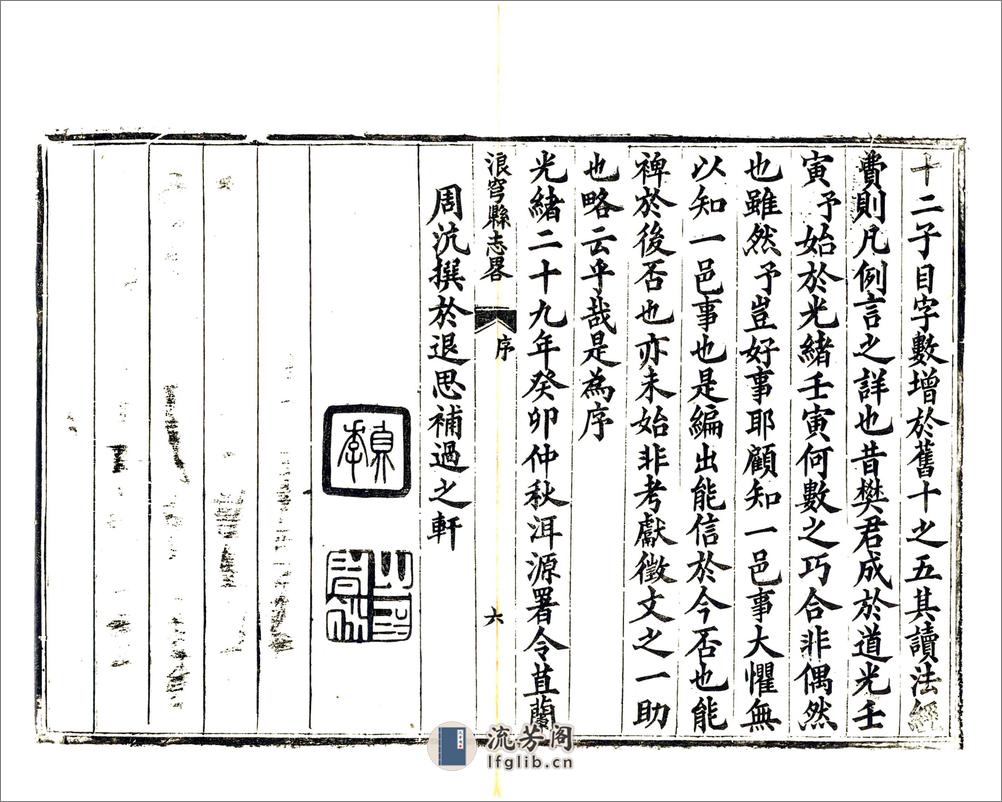 十二子目字數增於舊十之五其讀法經
費則凡例言之詳也昔樊君成於道光壬
寅予始於光緒壬寅何數之巧合非偶然
也雖然予豈好事耶顧知一邑事大懼無
以知一邑事也是編出能信於今否也能
裨於後否也亦未始非考獻徵文之一助
也略云乎哉是為序
光緒二十九年癸卯仲秋洱源署令苴蘭
浪穹縣志畧
序
六
周沆撰於退思補過之軒
流芳阁
lfglib.cn